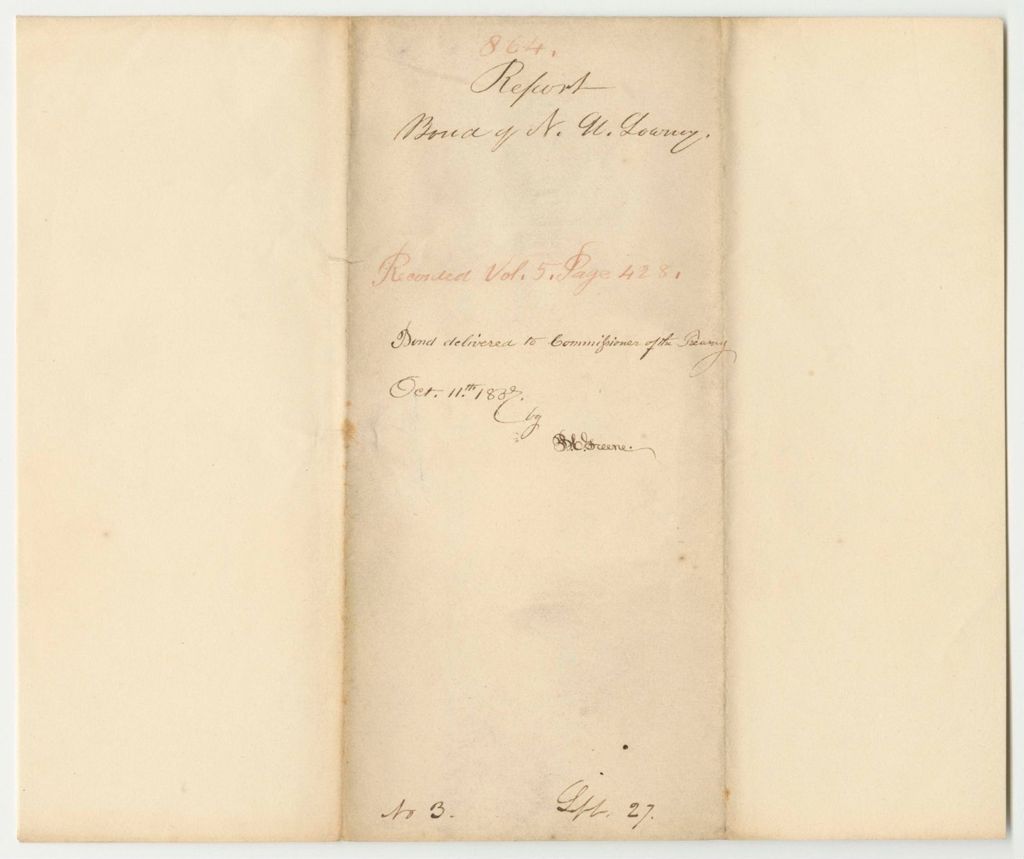 864.
Report
Bond of N. M. Lowney.
Recorded Vol. 5. Page 428.
Bond delivered to Commissioner of the Treasury
Oct. 11th
by
Greene.
No 3. Sept. 27.